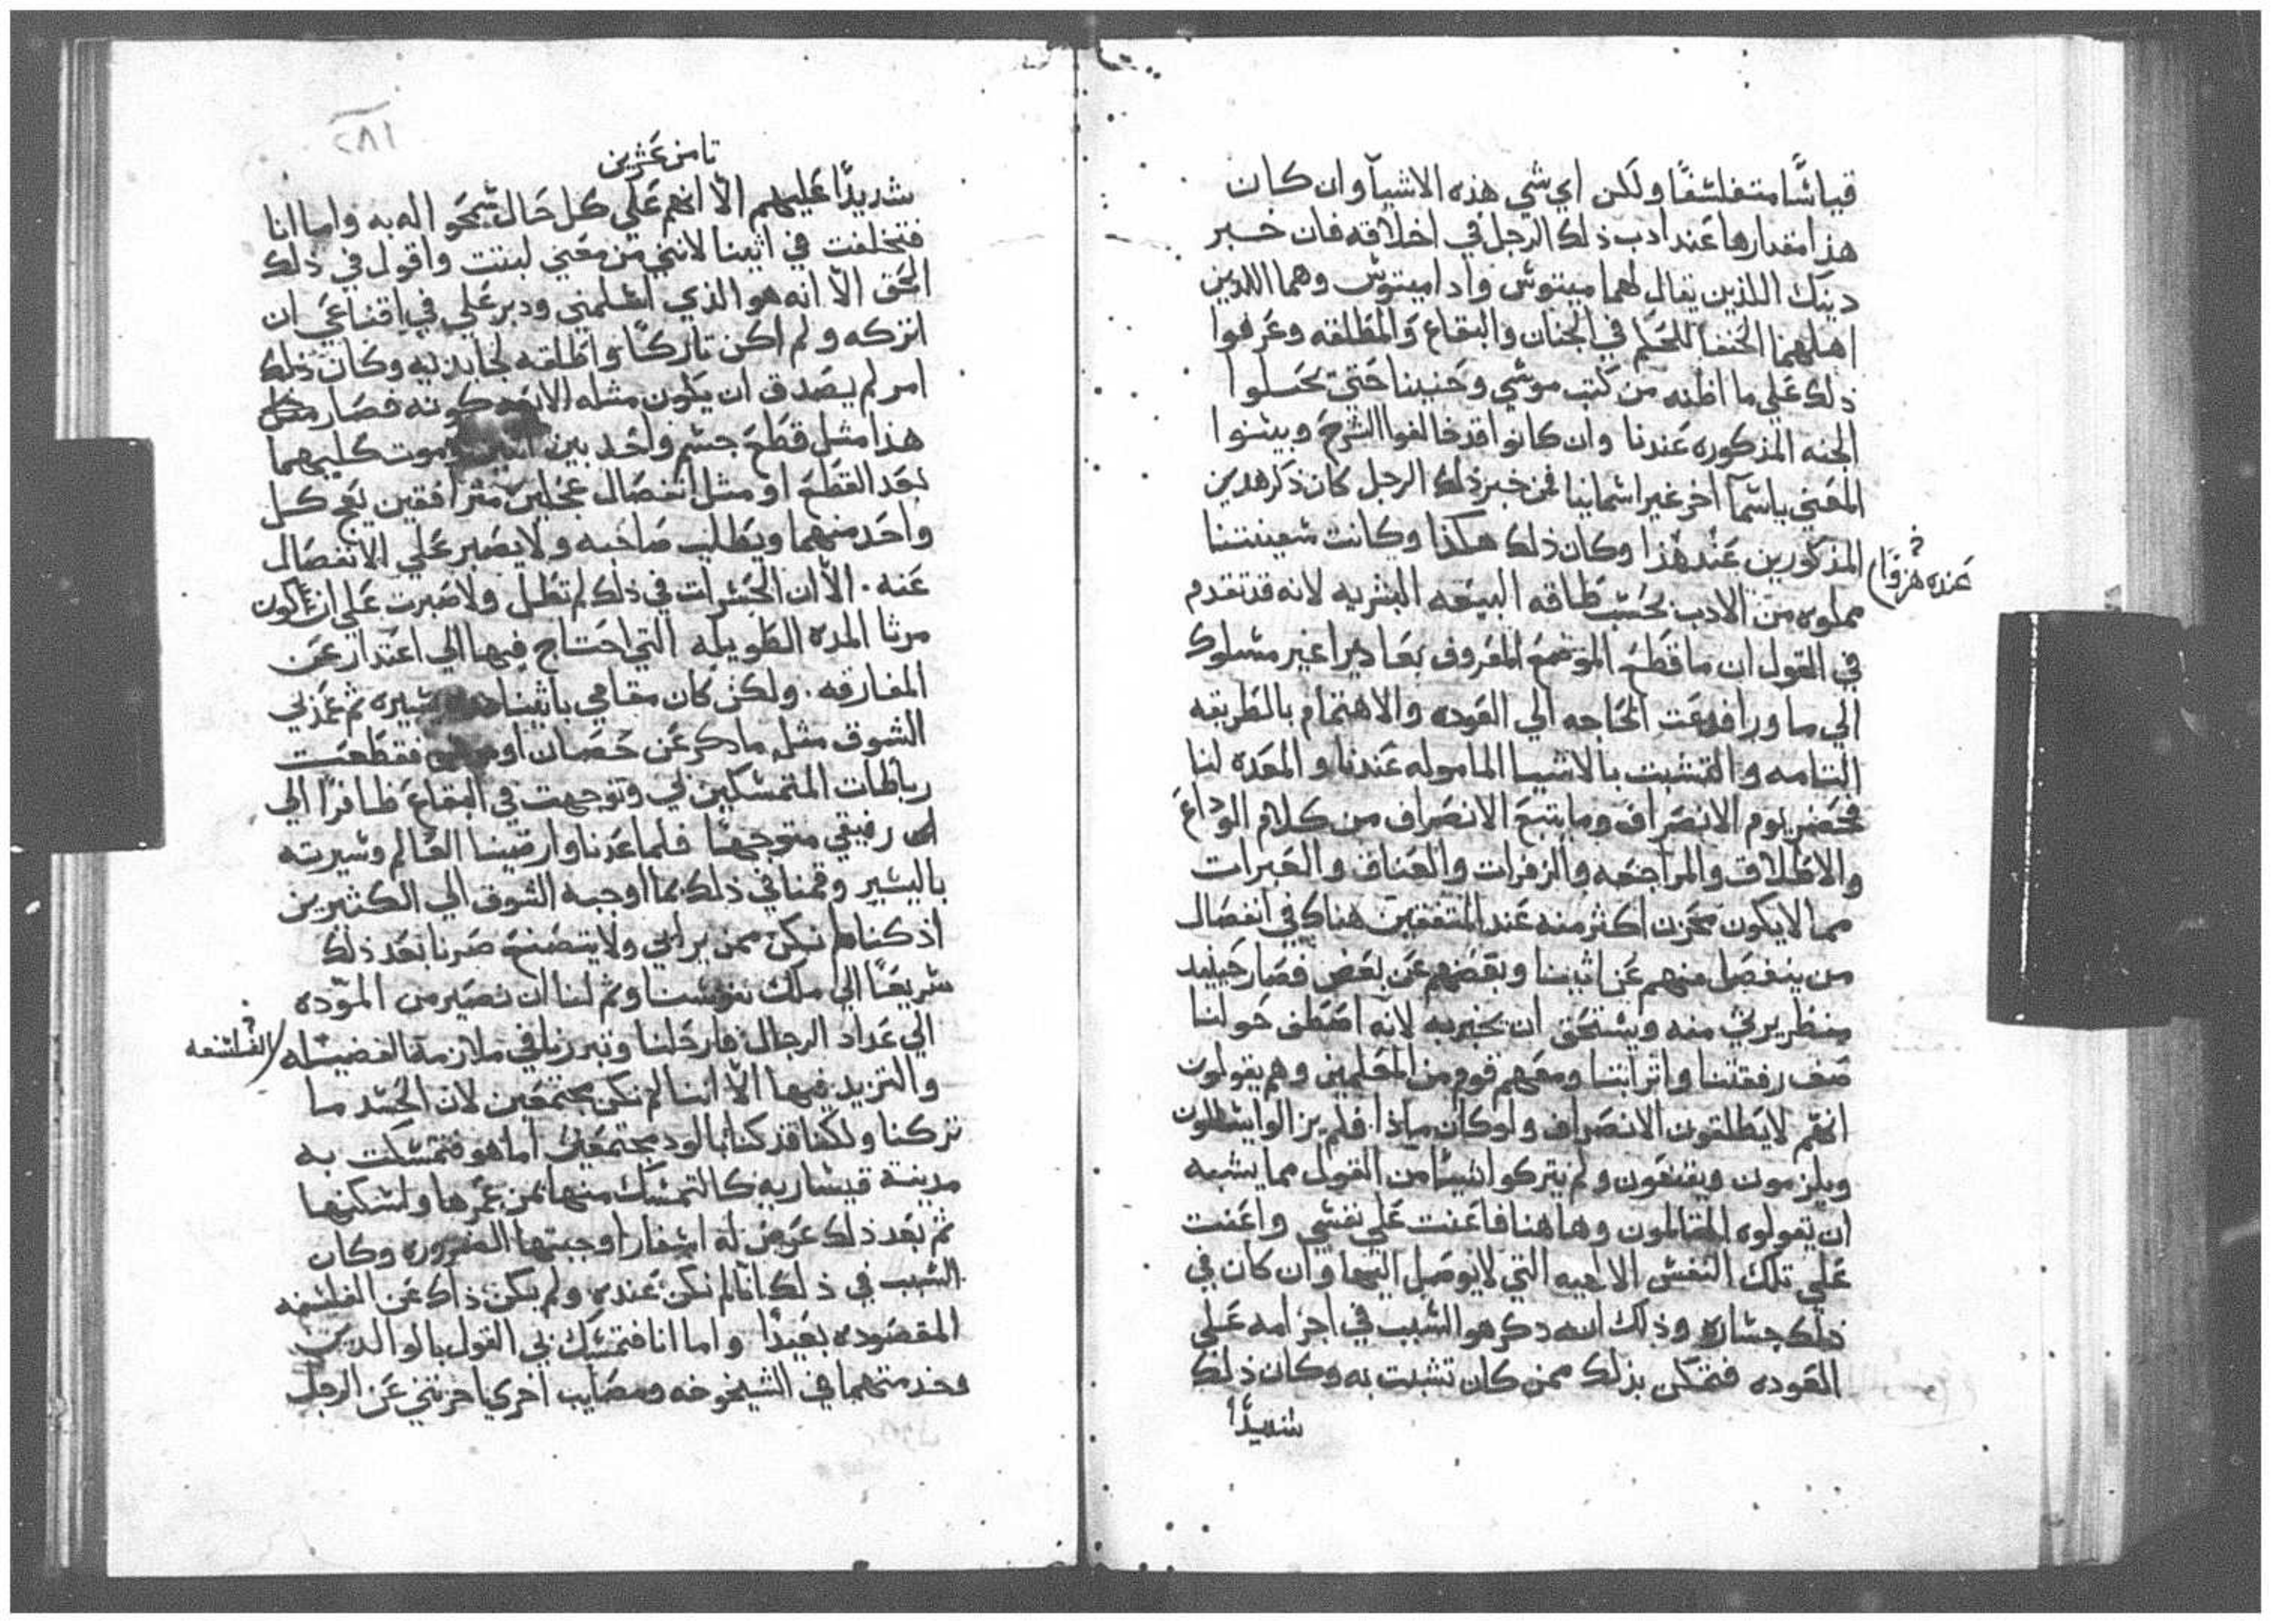 قياسًا متفلسفًا ولكن اي شي هذه الاشيآ وان كان
هذا مقدارها عند ادب ذلك الرجل في اخلاقه فان خبر
دينك اللذين يقال لهما مينوس وادامينوس وهما اللذين
اهلهما الحنفا للحكم في الجنان والبقاع والمطلقه وعرفوا
ذلك علي ما اظنه من كتب موسي وحسبنا حتي تحسلوا
الجنه المذكوره عندنا وان كانوا قد خالفوا الشرح وبينوا
المعني باسمآ اخر غير اسماينا فمن خبر ذلك الرجل كان ذكر هدين
المذكورين عند هذا وكان ذلك هكذا وكانت سفينتنا
عنده هزوًا
مملوه من الادب بحسب طاقه البيعه البشريه لانه قد تقدم
في القول ان ما قطع الموضع المعروف بغاديرا غير مسلوك
الي ما ورا فدعت الحاجه الي العوده والاهتمام بالطريقه
التامه والتشبت بالاشيا الماموله عندنا والمعده لنا
فحضر يوم الانصراف وما يتبع الانصراف من كلام الوداع
والاطلاق والمراجعه والزفرات والعناق والعبرات
مما لا يكون محزن اكثر منه عند المتفقين هناك في انفصال
من ينفصل منهم عن اثينا وبعضهم عن بعض فصار حينيد
منظر يرثي منه ويستحق ان يخبر به لانه اصطف حولنا
صف رفقتنا واترابنا ومعهم قوم من المعلمين وهم يقولون
انهم لا يطلقون الانصراف ولو كان ماذا فلم يزالوا يسلون
ويلزمون ويقنعون ولم يتركوا شيئًا من القول مما يشبه
ان يقولوه المتالمون وهاهنا فاعنت علي نفسي واعنت
علي تلك النفس الالهيه التي لا يوصل اليها وان كان في
ذلك جساره وذلك انه ذكر هو السبب في اجزامه علي
العوده فتمكن بذلك ممن كان تشبت به وكان ذلك
شديدًا
١٨٢
تامن عشرين
شديدًا عليهم الا انهم علي كل حال سمحوا له به واما انا
فتخلفت في اثينا لانني من معني لبنت واقول في ذلك
الحق الا انه هو الذي اسلمني ودبر علي في اقناعي ان
اتركه ولم اكن تاركًا واطلقه لجابذيه وكان ذلك
امر لم يصدق ان يكون مثله الا بعد كونه فصار مثل
هذا مثل قطع جسم واحد بين اثنين وموت كليهما
بعد القطع او مثل انفصال عجلين مترافقين يعج كل
واحد منهما ويطلب صاحبه ولا يصبر علي الانفصال
عنه . الا ان الحسرات في ذلك لم تطل ولا صبرت علي ان اكون
مرثا المده الطويله التي احتاج فيها الي اعتدار عن
المفارقه . ولكن كان مقامي باثينا مده يسيره ثم غمزني
الشوق مثل ما ذكر عن حصان فقطعت
رباطات المتمسكين بي وتوجهت في البقاع ظافرًا الي
رفيقي متوجهًا فلما عدنا وارضينا العالم وسيرته
باليسير وقمنا في ذلك بما اوجبه الشوق الي الكثيرين
اذ كنا لم نكن ممن يرائي ولا يتصنع صرنا بعد ذلك
سريعًا الي ملك نفوسنا وتم لنا ان نصير من المروده
الي عداد الرجال فارحلنا وتبرزنا في ملازمة الفضيله
الفلسفه
والتزيد فيها الا اننا لم نكن مجتمعين لان الحسد ما
تركنا ولكنا قد كنا بالود مجتمعين اما هو فتمسكت به
مدينة قيساريه كالتمسك منها بمن عمرها ولسكنها
ثم بعد ذلك عرض له اسفار اوجبتها الضروره وكان
السبب في ذلك انا لم نكن عنده ولم يكن ذلك عن الفلسفه
المقصوده بعيدًا واما انا فتمسك بي القول بالوالدين
وخدمتهما في الشيخوخه ومصايب اخري احزنتني عن الرجل